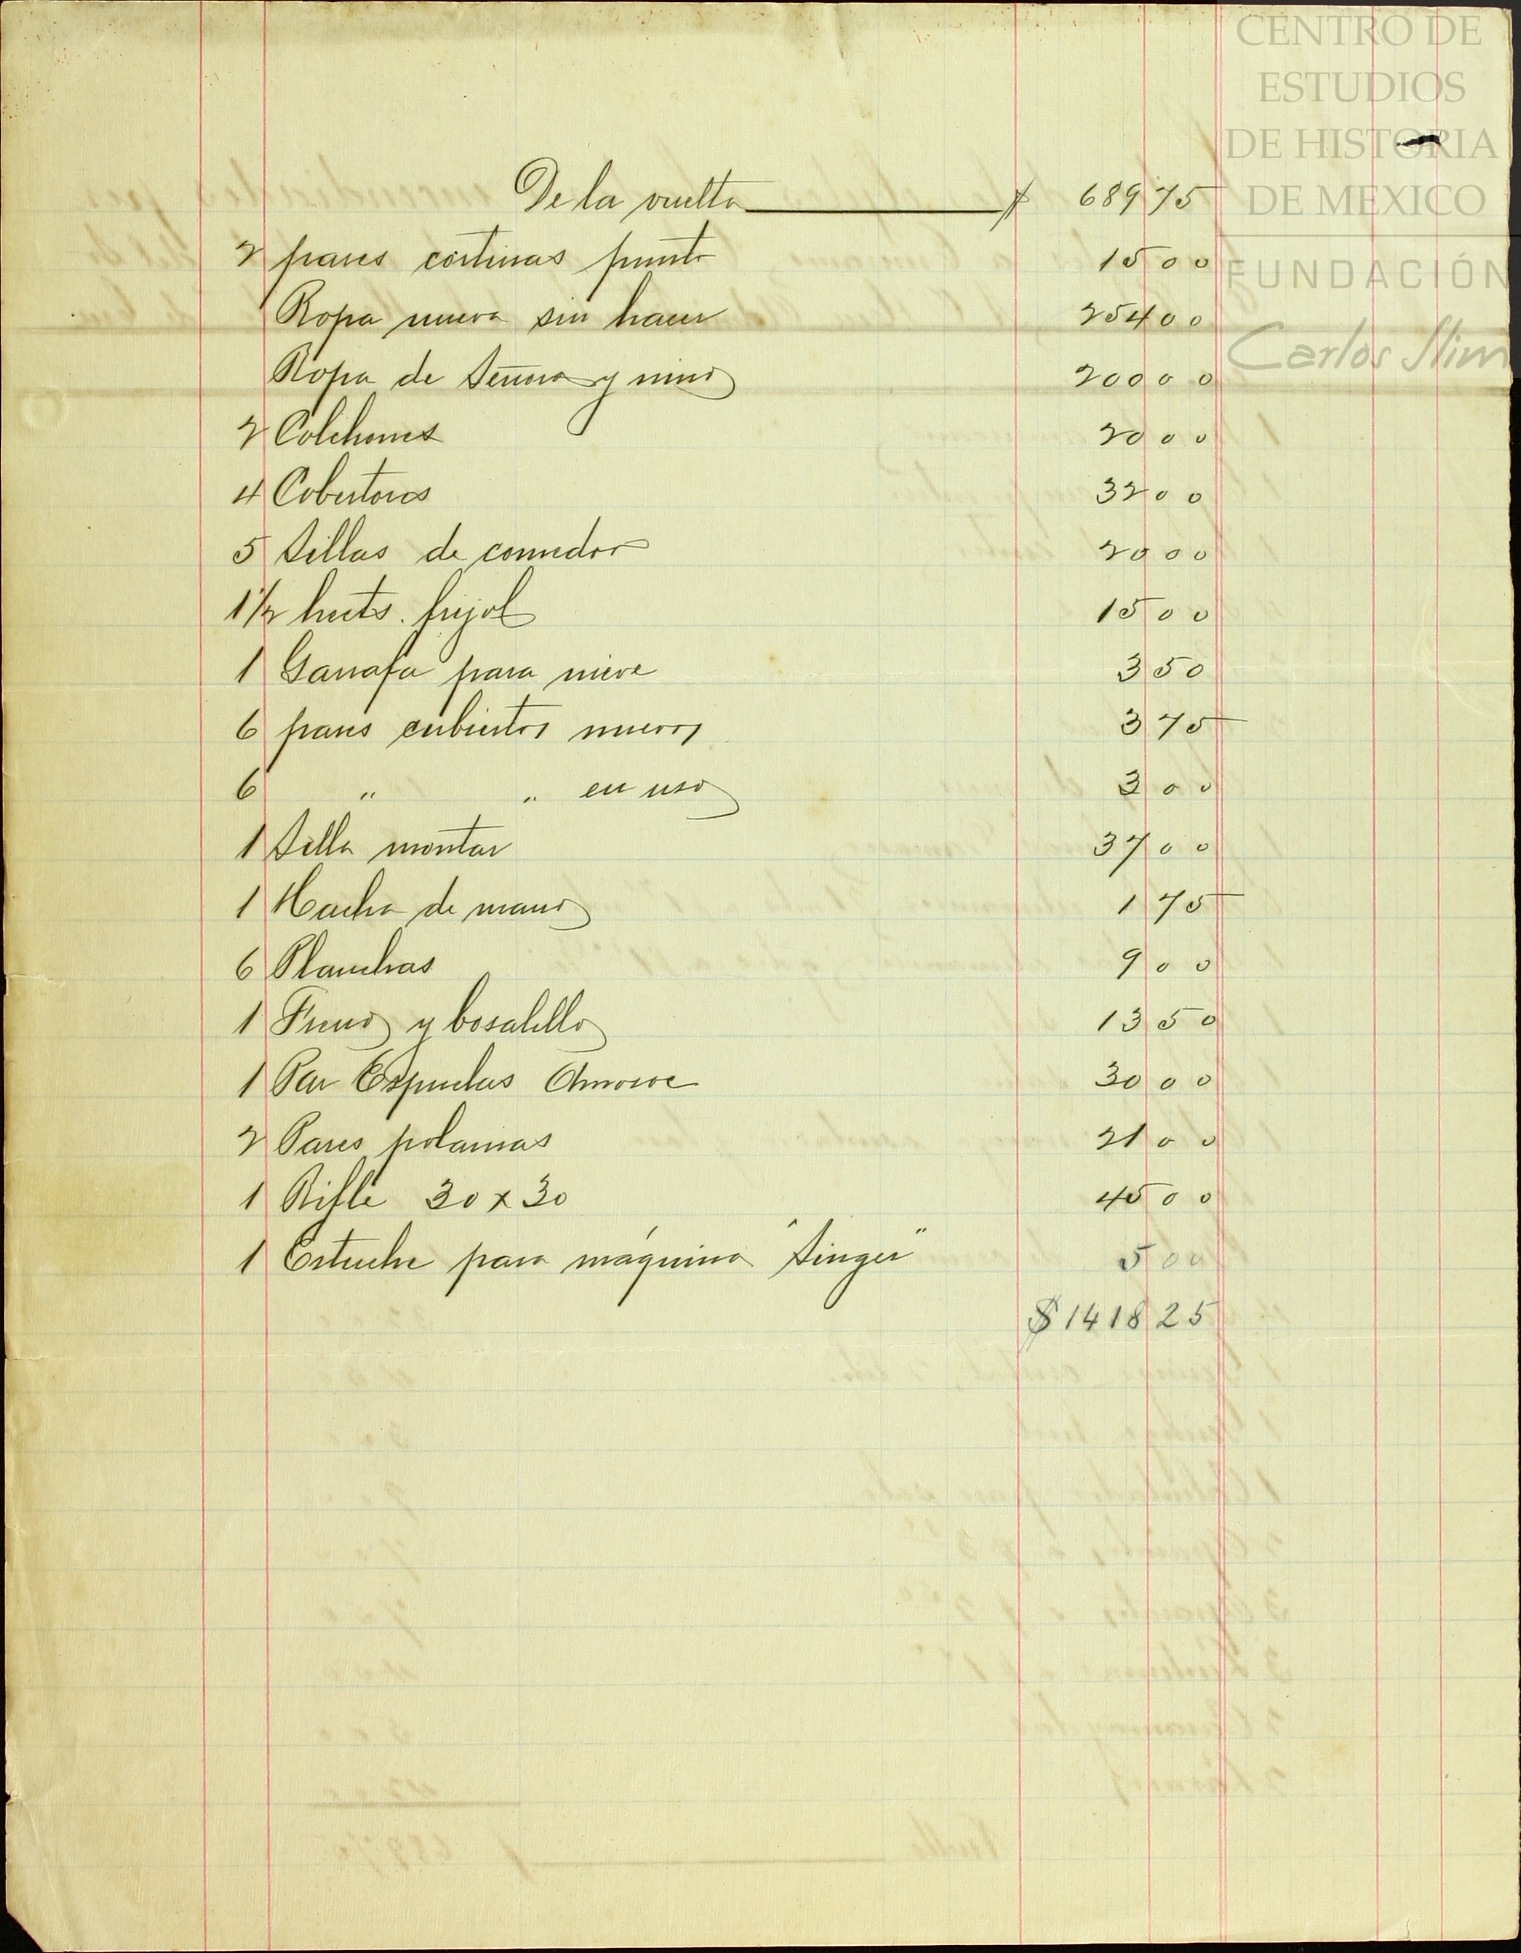 CENTRO DE
ESTUDIOS
DE HISTORIA
DE MEXICO
FUNDACIÓN
Carlos Slim
De la vuelta $ 689 75
2 pares cortinas punto 15 00
Ropa nueva sin hacer 254 00
Ropa de Señora y nino 200 00
2 Colchones 20 00
4 Cobertores 32 00
5 Sillas de comedor 20 00
1 1/2 hects. frijol 15 00
1 Garrafa para nieve 3 50
6 pares cubiertos nuevos 3 75
6 " " en uso 3 00
1 Silla montar 37 00
1 Hacha de mano 1 75
6 Planchas 9 00
1 Freno y bosalillo 13 50
1 Par Espuelas Amozoc 30 00
2 Pares polainas 21 00
1 Rifle 30 x 30 45 00
1 Estuche para máquina "Singer" 5 00
$ 1418 25